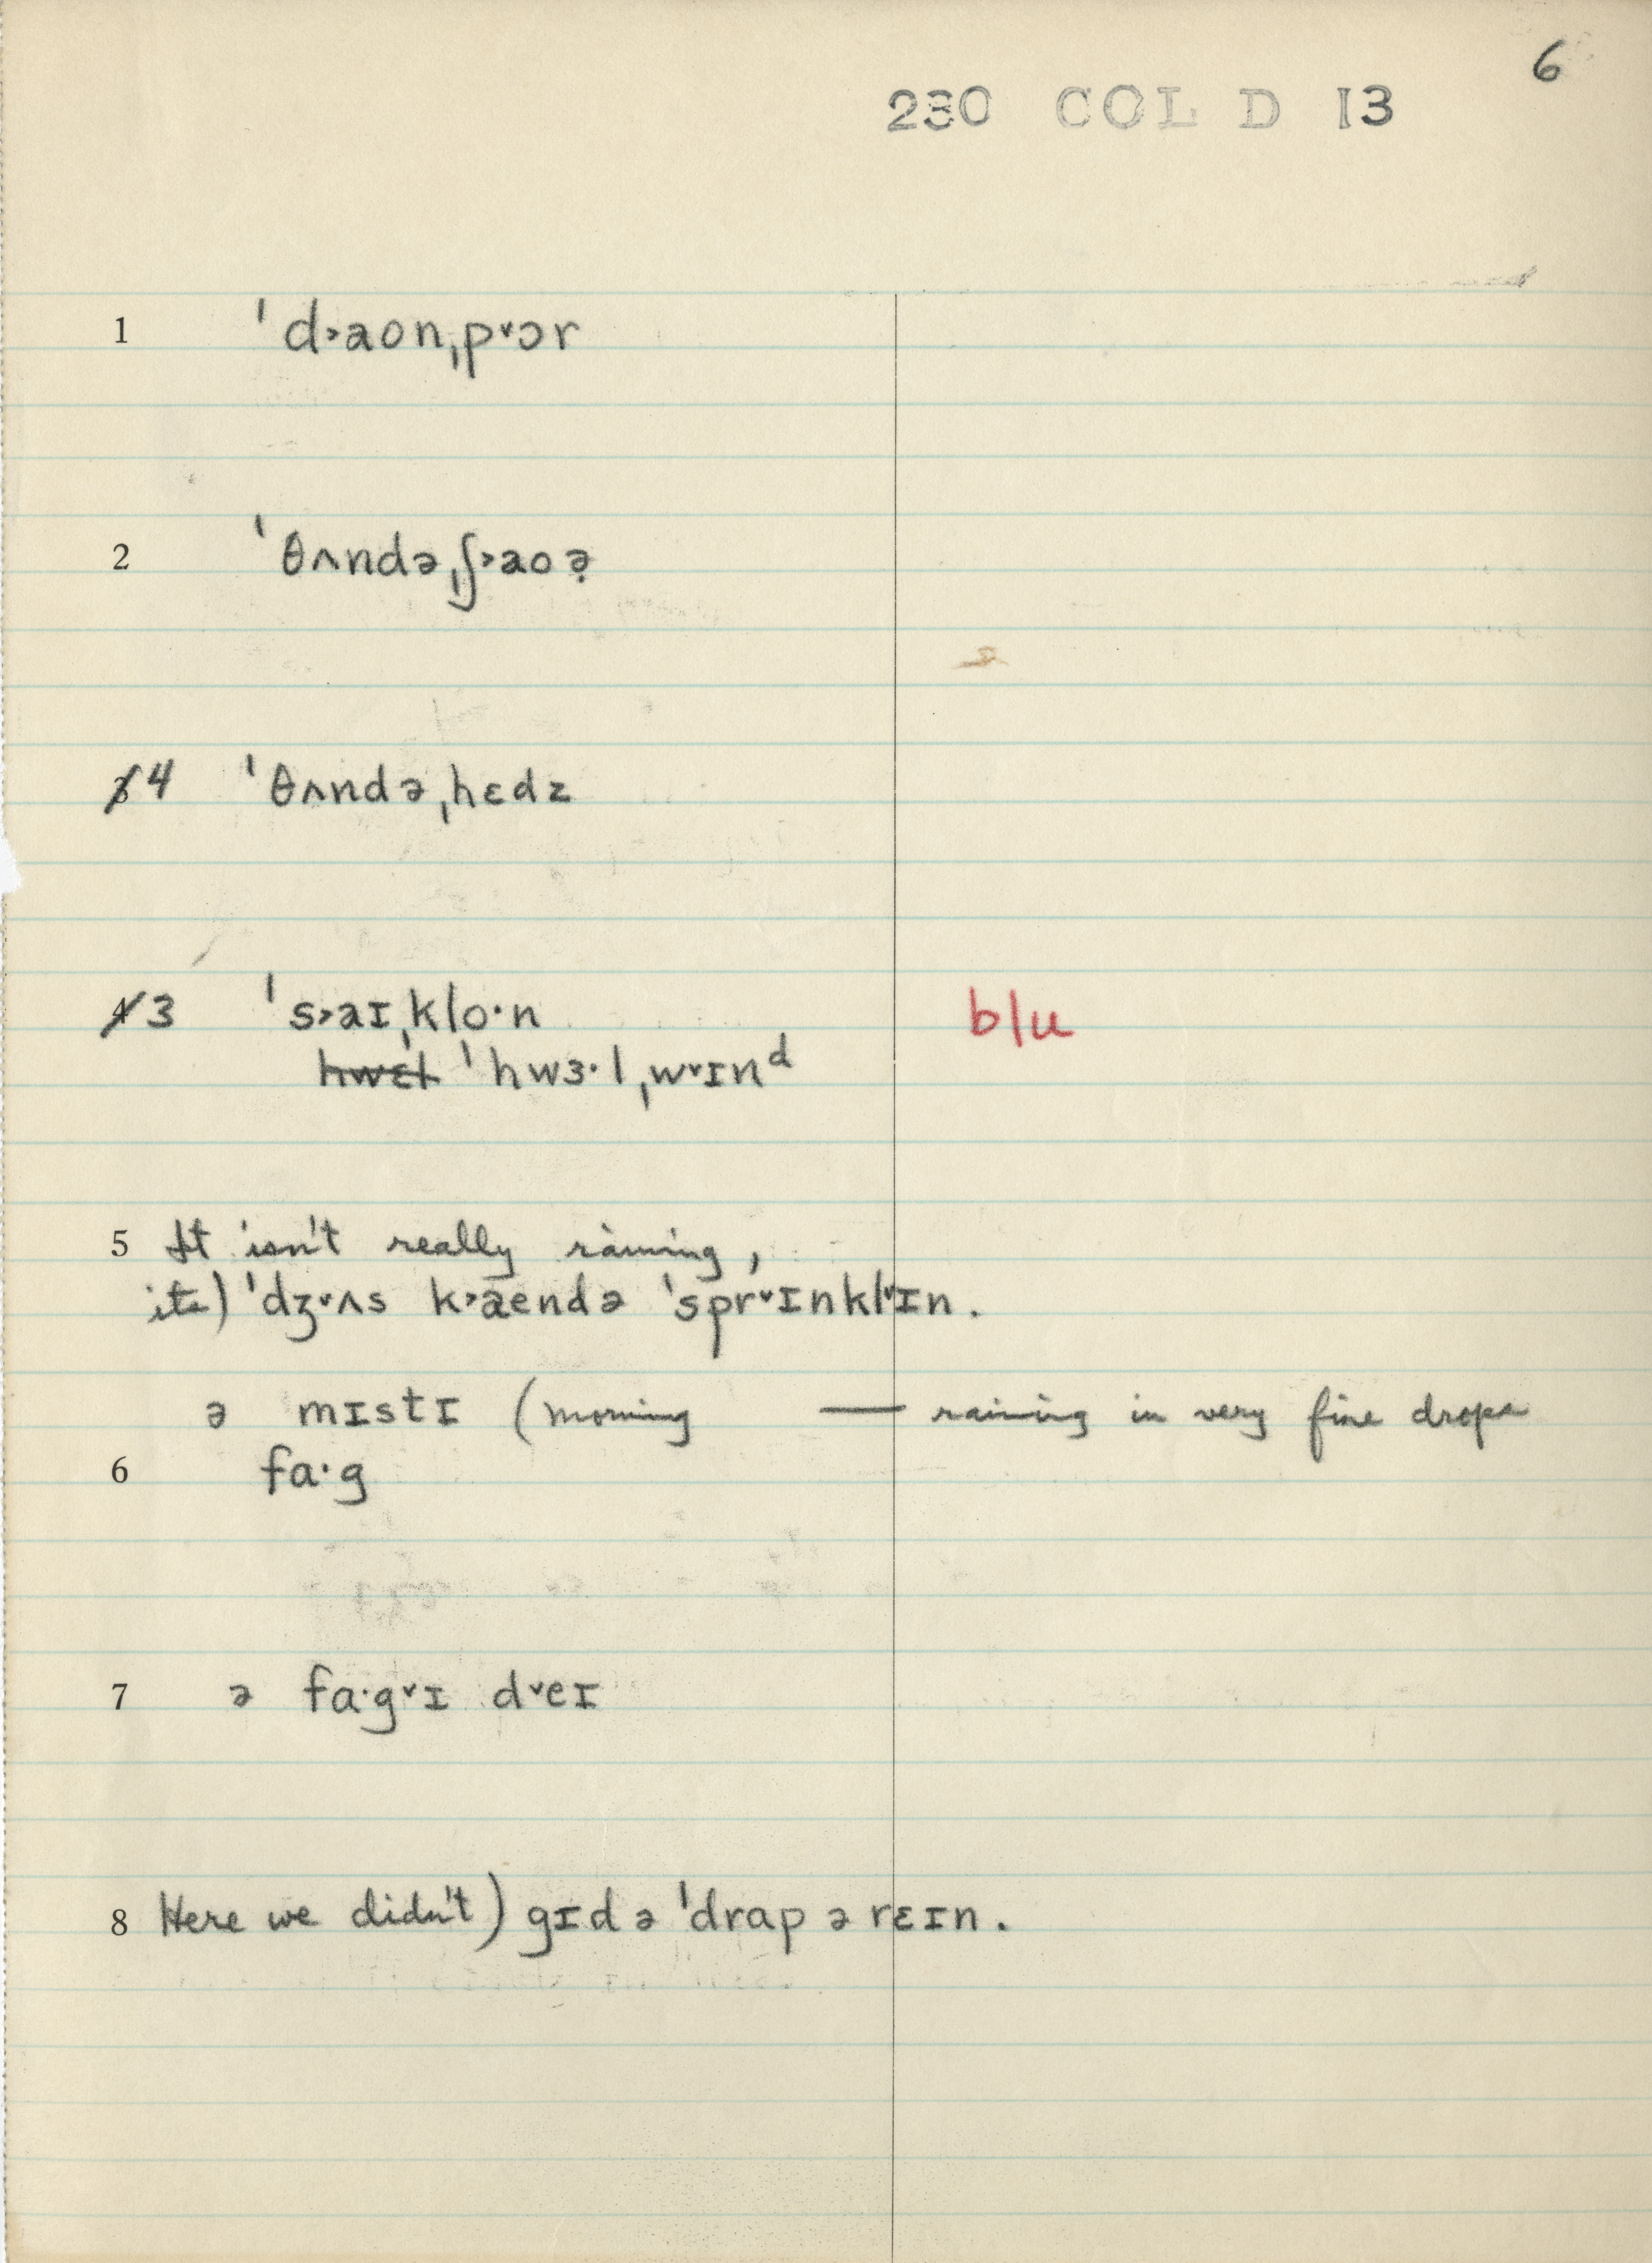 6
230 COL D 13
1 ˈd˃aon,p˅ɔr
2 ˈθʌndə,ʃ˃aoə̣
3 4 ˈθʌndə,hɛdz
4 3 ˈs˃aɪ,klo·n blu
hwɛl ˈhwɜ·l,w˅ɪnᵈ
5 It isn't really raining,
its) ˈdʒ˅ʌs k˃aendə ˈspr˅ɪnkl˅ɪn.
ə mɪstɪ (morning — raining in very fine drops
6 fa·g
7 ə fa·g˅ɪ d˅eɪ
8 Here we didn't) gɪdə ˈdrap ə rɛɪn.